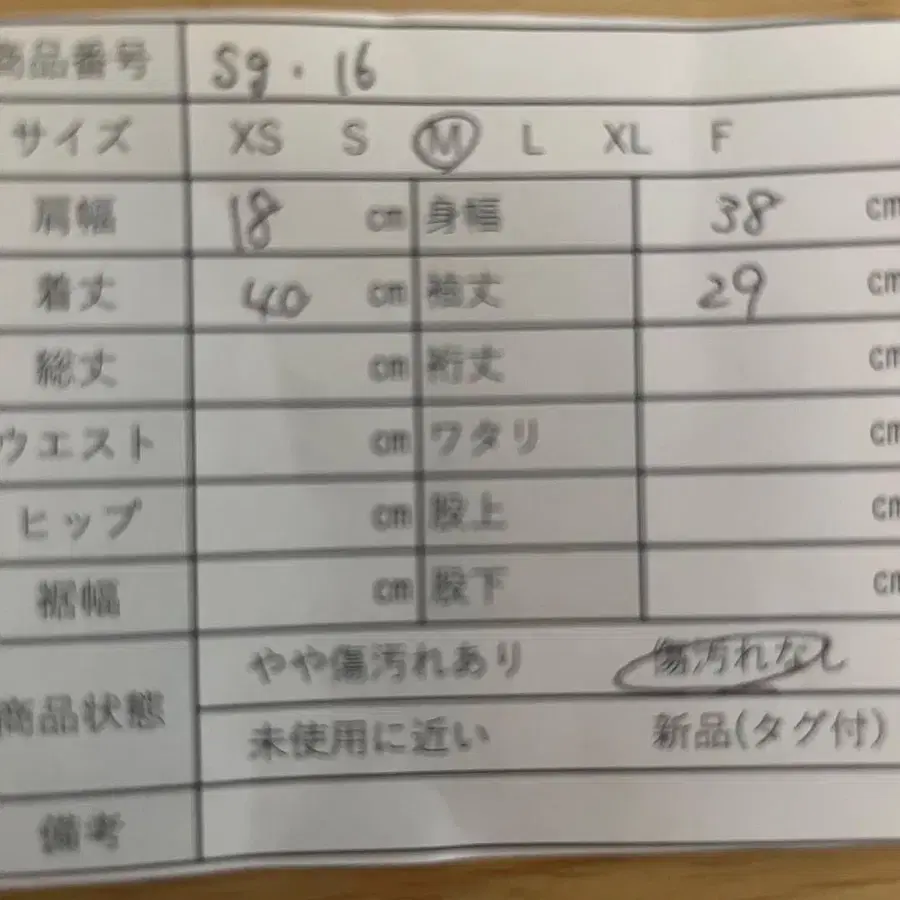 商品番号 Sg・16
サイズ XS S M L XL F
肩幅 18 cm 身幅 38 cm
着丈 40 cm 袖丈 29 cm
総丈 cm 裄丈 cm
ウエスト cm ワタリ cm
ヒップ cm 股上 cm
裾幅 cm 股下 cm
商品状態 やや傷汚れあり 傷汚れなし
未使用に近い 新品(タグ付)
備考